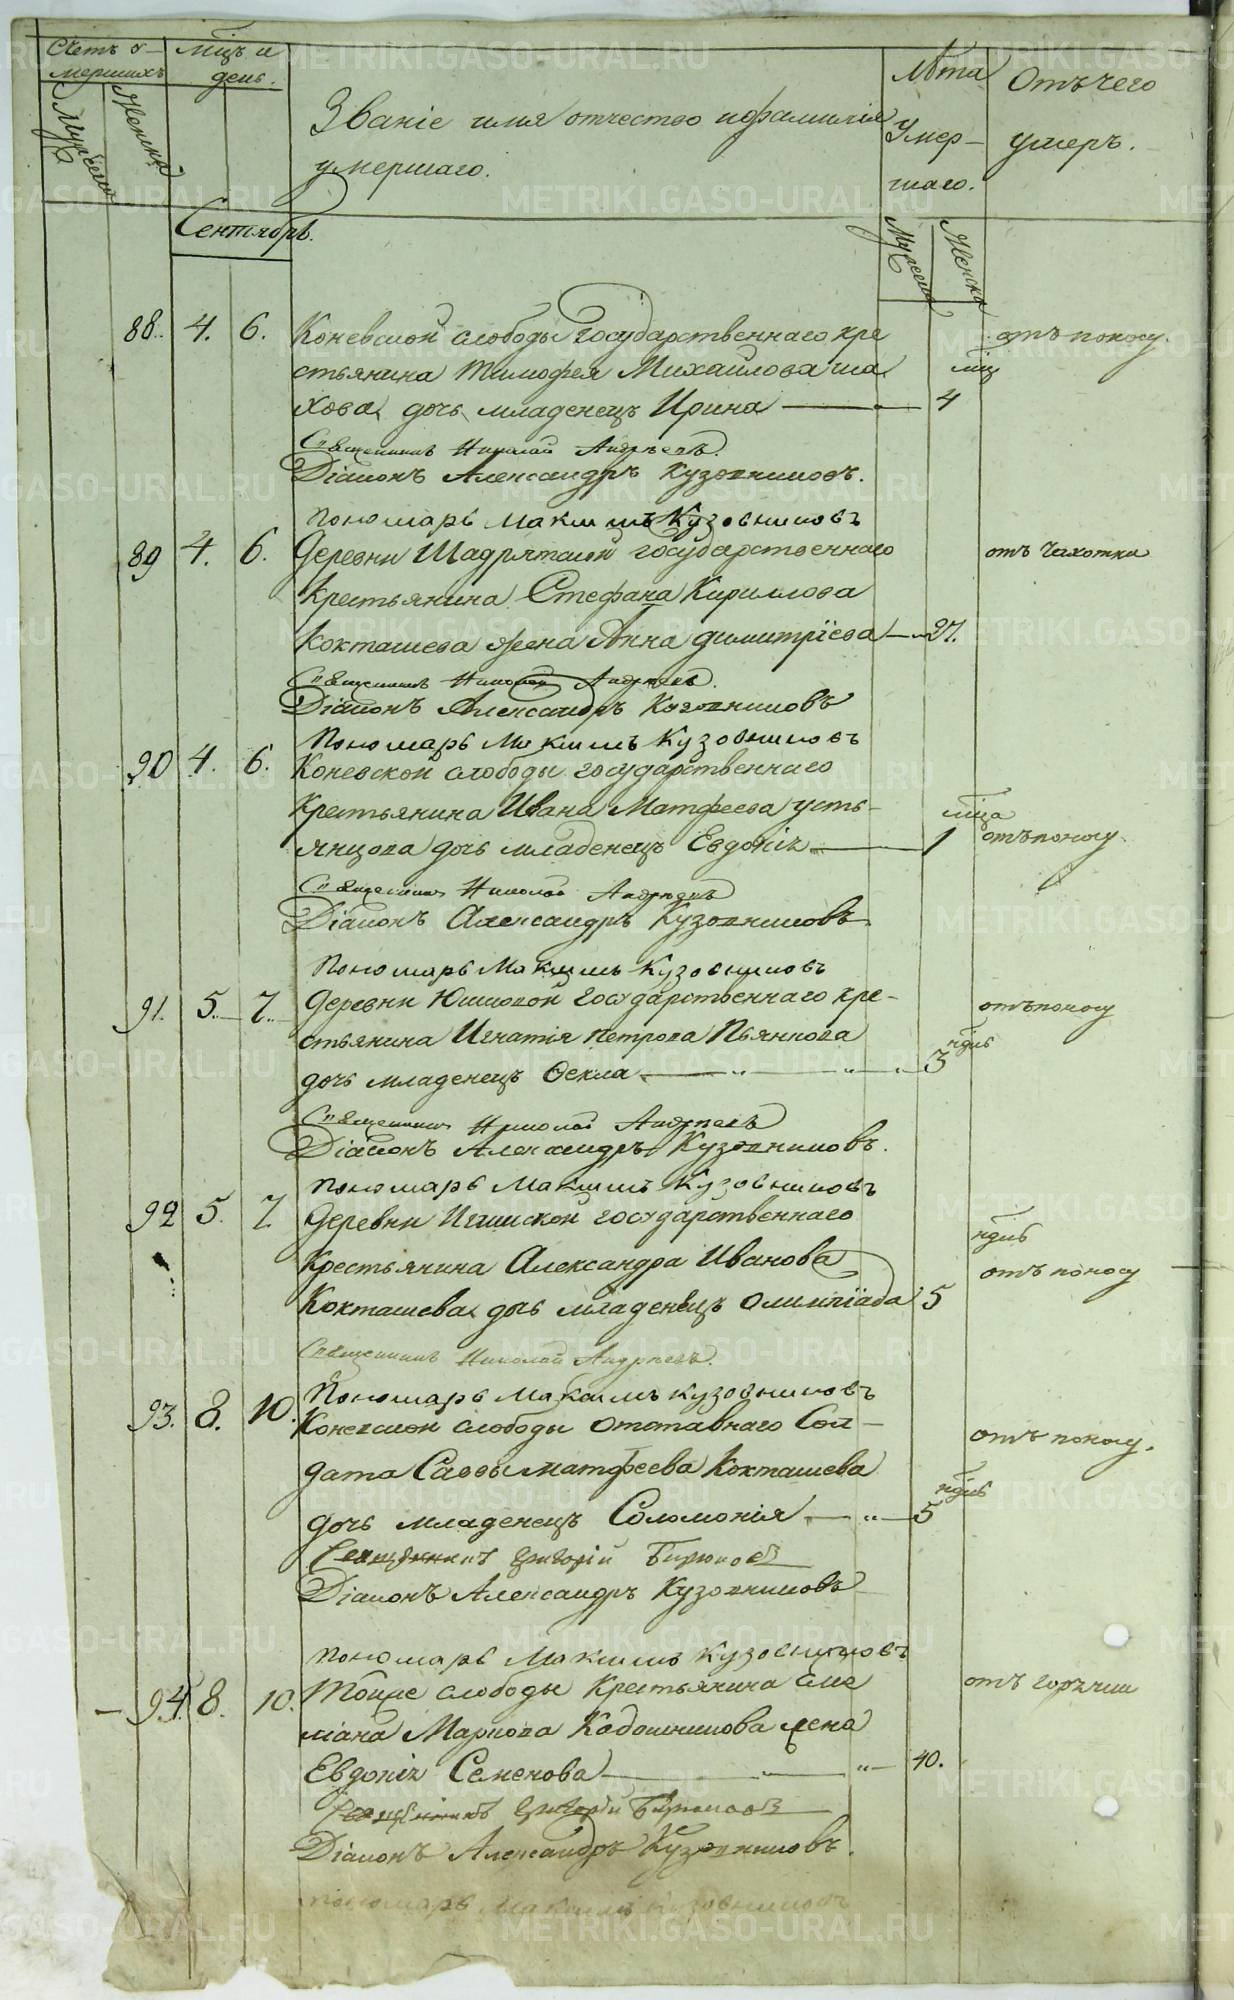 Счетъ у-
мершихъ
Мужеска
Женска
Мцъ и
день.
Званіе имя отчество и фамилія
умершаго.
Лѣта
Умер-
шаго.
Мужеска
Женска
Отъ чего
умеръ.
Сентябрь.
88. 4. 6. Коневской слободы Государственнаго кре
отъ поносу.
стьянина Тимофея Михайлова
мцъ
дочь младенецъ Ирина 4
Священникъ Николай Андреевъ.
Діаконъ Александръ Кузовниковъ.
Пономарь Максимъ Кузовниковъ
89 4. 6. Деревни государственнаго
отъ чахотки
Крестьянина Стефана Кириллова
Кокташева жена Анна Димитріева 37.
Священникъ Николай Андреевъ.
Діаконъ Александръ Кузовниковъ
Пономарь Максимъ Кузовниковъ
90 4. 6. Коневской слободы государственнаго
Крестьянина Ивана Матфеева Усть-
мца
янцова дочь младенецъ Евдокія 1 отъ поносу.
Священникъ Николай Андреевъ
Діаконъ Александръ Кузовниковъ
Пономарь Максимъ Кузовниковъ
91. 5. 7. Деревни Юшковой Государственнаго кре-
отъ поносу
стьянина Игнатія Петрова Пьянкова
ндль
дочь младенецъ Ѳекла 3
Священникъ Николай Андреевъ
Діаконъ Александръ Кузовниковъ.
Пономарь Максимъ Кузовниковъ
92 5. 7. Деревни государственнаго
ндль
Крестьянина Александра Иванова
отъ поносу
Кокташева дочь младенецъ Олимпіада 5
Священникъ Николай Андреевъ.
Пономарь Максимъ Кузовниковъ
93. 8. 10. Коневской слободы отставнаго Сол-
отъ поносу.
дата Саввы Матфеева Кокташева
ндль
дочь младенецъ Соломонія 5
Священникъ Григорій Бирюковъ
Діаконъ Александръ Кузовниковъ
Пономарь Максимъ Кузовниковъ
94. 8. 10. Тойже слободы Крестьянина Еме
отъ горячки
ліана Маркова жена
Евдокія Семенова 40.
Священникъ Григорій Бирюковъ
Діаконъ Александръ Кузовниковъ.
Пономарь Максимъ Кузовниковъ
METRIKI.GASO-URAL.RU